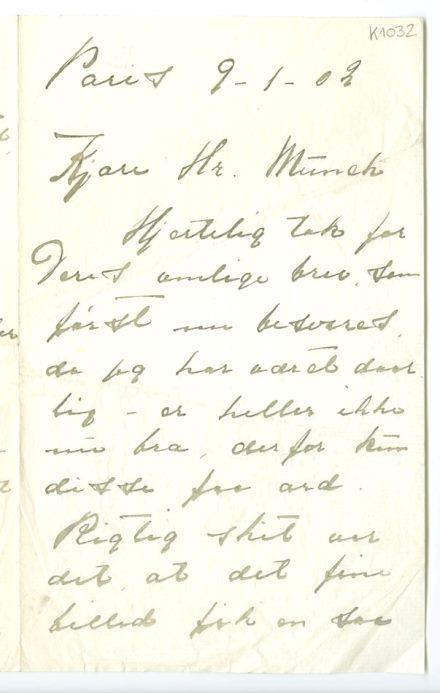 K1032
Paris 9-1-03
Kjære Hr. Munch
Hjertelig tak for
Deres venlige brev, som
først nu besvares,
da jeg har været daar-
lig - er heller ikke
nu bra, derfor kun
disse faa ord.
Rigtig skit var
det, at det fine
billed fik en saa